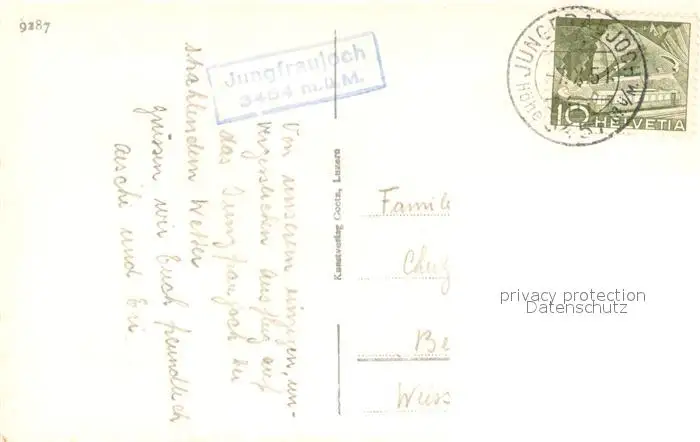 9287
Jungfraujoch
3454 m.ü.M.
JUNGFRAUJOCH
HELVETIA
10
Von unserem einzigen, un-
vergesslichen Ausflug auf
das Jungfraujoch bei
strahlendem Wetter
grüssen wir Euch freundlich
und
Kunstverlag Goetz, Luzern
Famil
Be
Weiss
privacy protection
Datenschutz